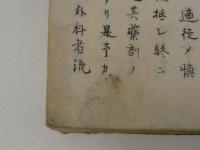 適從メ慎
抵レ終ニ
其藥剤ノ
リ是予カ
外科者流